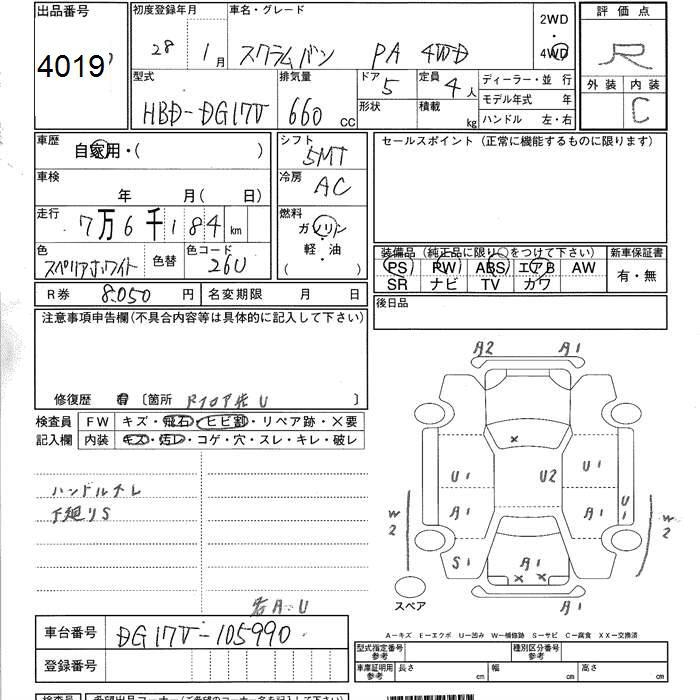 出品番号
4019
初度登録年月
28 1月
車名・グレード
スクラムバン PA 4WD
2WD
4WD
評価点
R
外装 内装
C
型式
HBD-DG17V
排気量
660 CC
ドア
5
形状
定員
4人
積載
kg
ディーラー・並 行
モデル年式 年
ハンドル 左・右
車歴
自家用・( )
シフト
5MT
セールスポイント (正常に機能するものに限ります)
車検
年 月( 日)
冷房
AC
走行
7万6千184 km
燃料
ガソリン
軽・油
( )
色
スペリアホワイト
色替
色コード
26U
装備品 (純正品に限り○をつけて下さい)
新車保証書
PS PW ABS エアB AW
SR ナビ TV カワ
有・無
R券 8.050 円
名変期限 月 日
後日品
注意事項申告欄(不具合内容等は具体的に記入して下さい)
修復歴 有 〔箇所 Rフロア先 U 〕
検査員
記入欄
FW キズ・飛石・ヒビ割・リペア跡・×要
内装 キズ・汚レ・コゲ・穴・スレ・キレ・破レ
ハンドルスレ
下廻りS
A2 A1
U1 U2 U1
A1 A1 U1
W2 W2
S1 A1
スペア
A-キズ E-エクボ U-凹み W-補修跡 S-サビ C-腐食 XX-交換済
車台番号
DG17V-105990
登録番号
型式指定番号
参考
種別区分番号
参考
車庫証明用
参考
長さ cm 幅 cm 高さ cm
検査員
希望出品コーナー(ご希望のコーナー名を記入下さい)